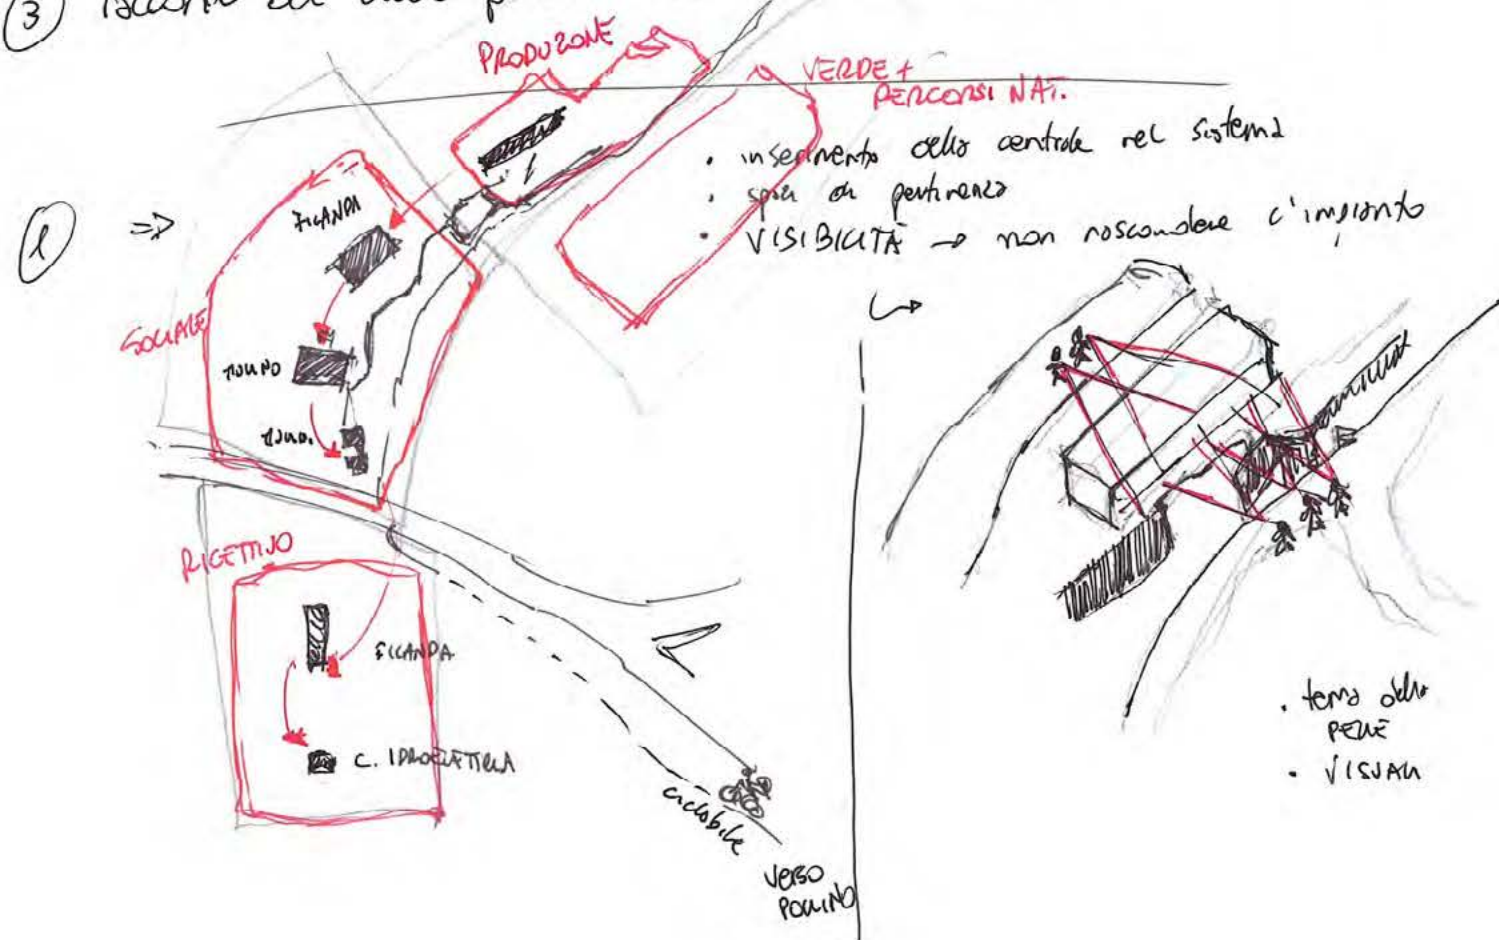 ③
PRODUZONE
VERDE +
PERCORSI NAT.
• inserimento della centrale nel sistema
• spazi di pertinenza
• VISIBILITÀ → non nascondere l'impianto
① ⇒
FILANDA
SOCIALE
MULINO
MUL.
RICETTIVO
FILANDA
C. IDROELETTRICA
ciclobile
VERSO
POLLINO
• tema della
PELLE
• VISUALI